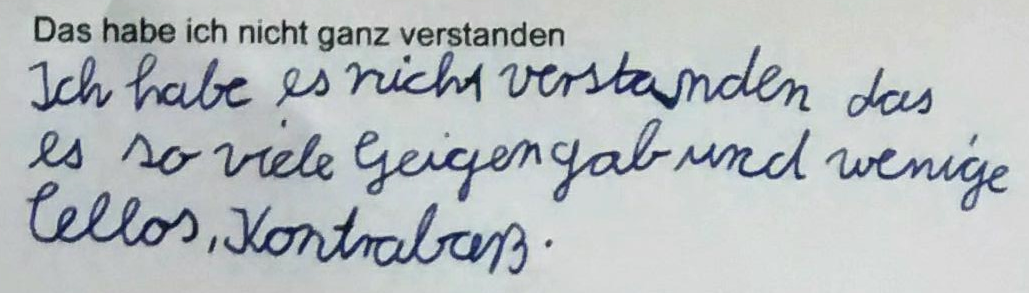 Das habe ich nicht ganz verstanden
Ich habe es nicht verstanden das
es so viele Geigen gab und wenige
Cellos, Kontrabaß.